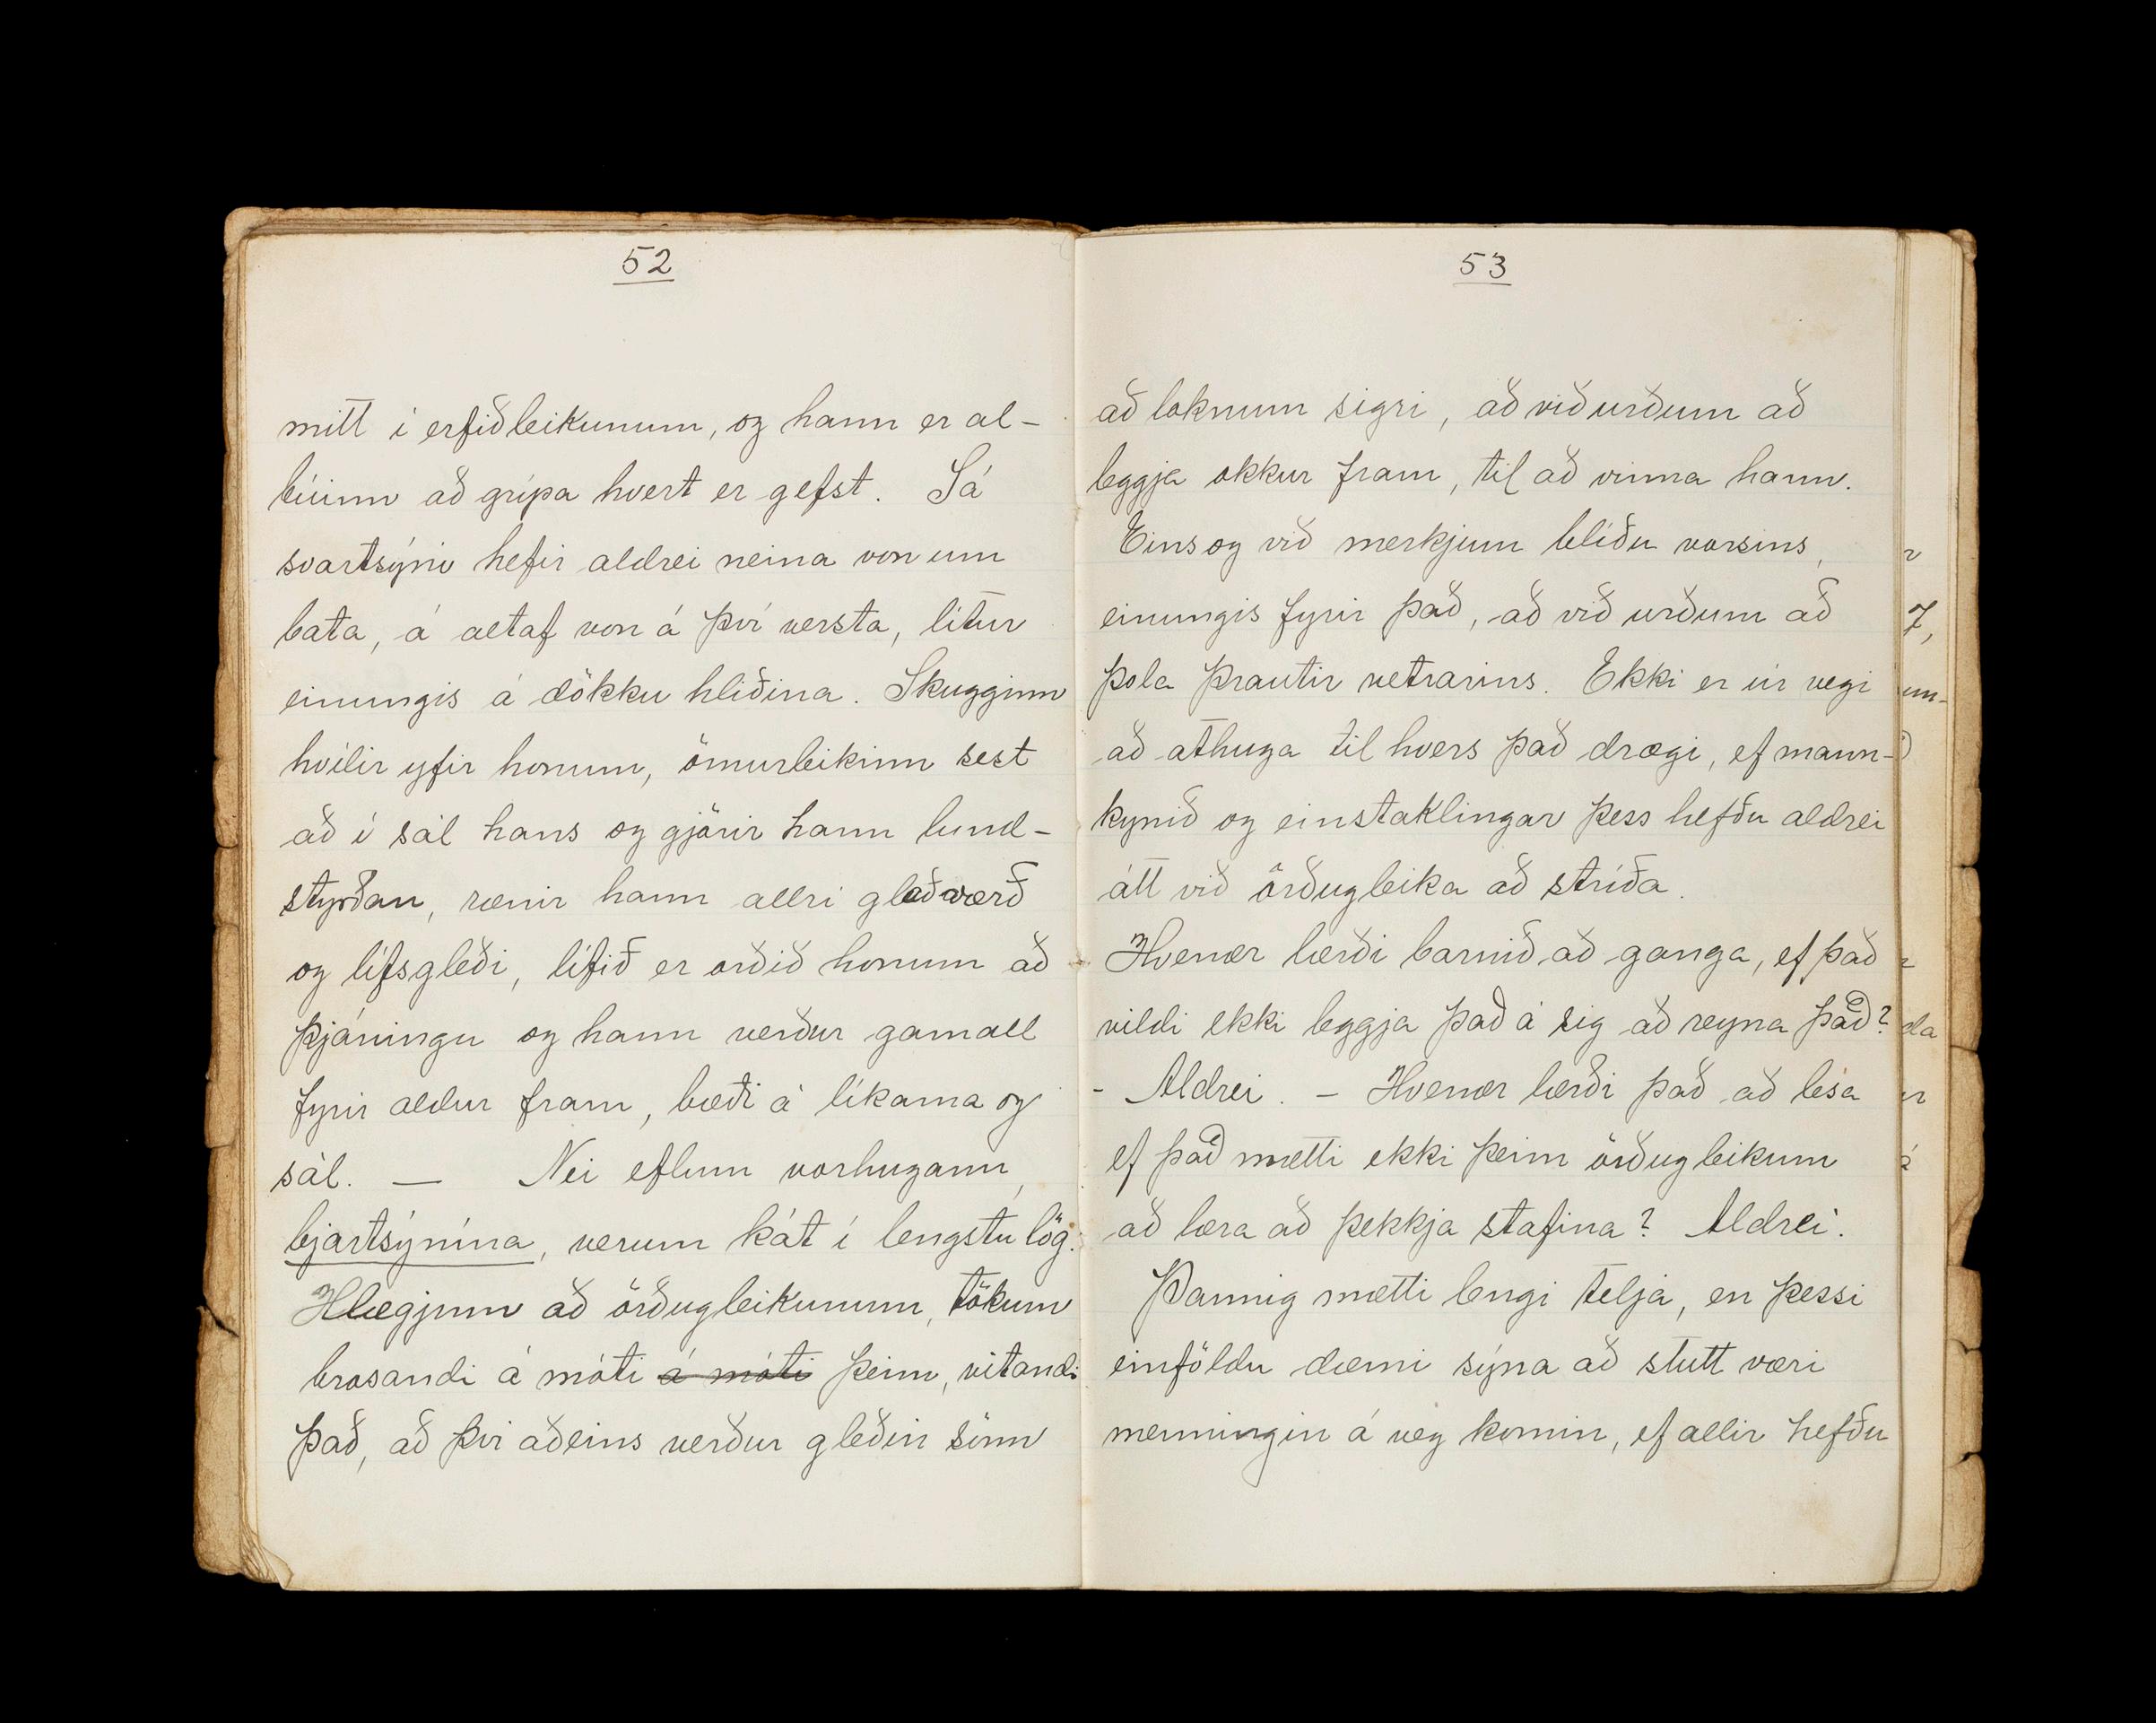 52
mitt í erfiðleikunum, og hann er al-
búinn að grípa hvert er gefst. Sá
svartsýni hefir aldrei neina von um
bata, á altaf von á því versta, lítur
einungis á dökku hliðina. Skugginn
hvílir yfir honum, ömurleikinn sest
að í sál hans og gjörir hann lund-
styrðan, rænir hann allri glaðværð
og lífsgleði, lífið er orðið honum að
þjáningu og hann verður gamall
fyrir aldur fram, bæði á líkama og
sál. — Nei eflum vorhugann,
bjartsýnina, verum kát í lengstu lög.
Hlægjum að örðugleikunum, tökum
brosandi á móti á móti þeim, vitandi
það, að því aðeins verður gleðin sönn
53
að loknum sigri, að við urðum að
leggja okkur fram, til að vinna hann.
Eins og við merkjum blíðu vorsins,
einungis fyrir það, að við urðum að
þola þrautir vetrarins. Ekki er úr vegi
að athuga til hvers það drægi, ef mann-
kynið og einstaklingar þess hefðu aldrei
átt við örðugleika að stríða.
Hvenær lærði barnið að ganga, ef það
vildi ekki leggja það á sig að reyna það?
- Aldrei. - Hvenær lærði það að lesa
ef það mætti ekki þeim örðugleikum
að læra að þekkja stafina? Aldrei.
Þannig mætti lengi telja, en þessi
einföldu dæmi sýna að stutt væri
menningin á veg komin, ef allir hefðu